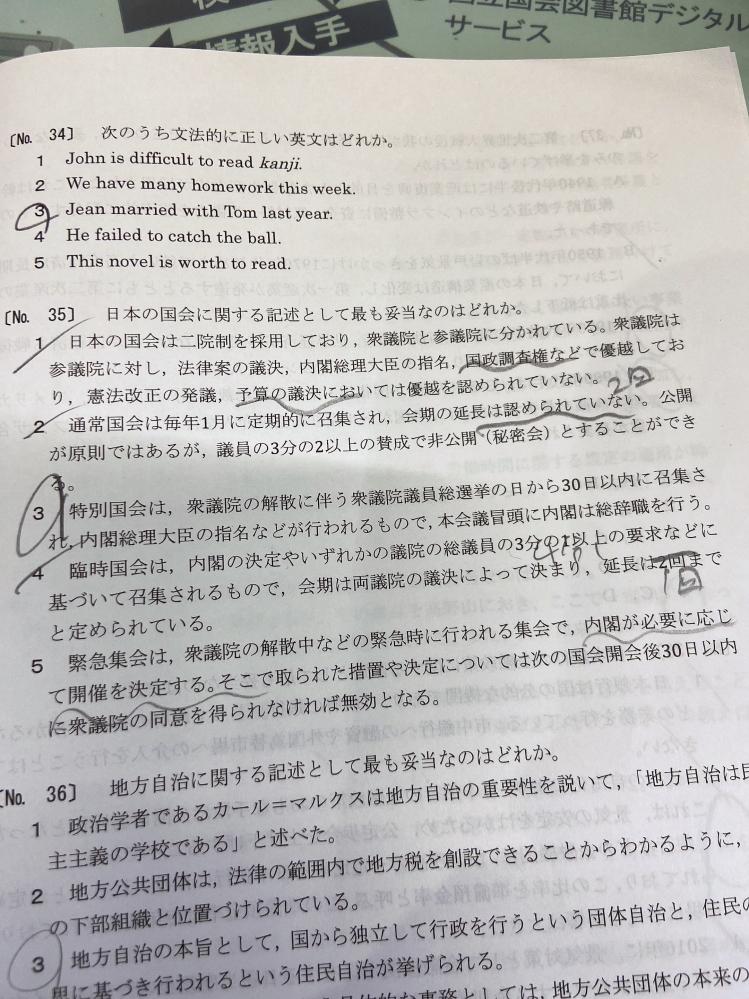 情報入手
国立国会図書館デジタル
サービス
〔No. 34〕 次のうち文法的に正しい英文はどれか。
1 John is difficult to read kanji.
2 We have many homework this week.
3 Jean married with Tom last year.
4 He failed to catch the ball.
5 This novel is worth to read.
〔No. 35〕 日本の国会に関する記述として最も妥当なのはどれか。
1 日本の国会は二院制を採用しており，衆議院と参議院に分かれている。衆議院は
参議院に対し，法律案の議決，内閣総理大臣の指名，国政調査権などで優越してお
り，憲法改正の発議，予算の議決においては優越を認められていない。
2回
2 通常国会は毎年1月に定期的に召集され，会期の延長は認められていない。公開
が原則ではあるが，議員の3分の2以上の賛成で非公開（秘密会）とすることができ
る。
3 特別国会は，衆議院の解散に伴う衆議院議員総選挙の日から30日以内に召集さ
れ，内閣総理大臣の指名などが行われるもので，本会議冒頭に内閣は総辞職を行う。
4 臨時国会は，内閣の決定やいずれかの議院の総議員の3分の1以上の要求などに
基づいて召集されるもので，会期は両議院の議決によって決まり，延長は2回まで
と定められている。
5 緊急集会は，衆議院の解散中などの緊急時に行われる集会で，内閣が必要に応じ
て開催を決定する。そこで取られた措置や決定については次の国会開会後30日以内
に衆議院の同意を得られなければ無効となる。
〔No. 36〕 地方自治に関する記述として最も妥当なのはどれか。
1 政治学者であるカール＝マルクスは地方自治の重要性を説いて，「地方自治は民
主主義の学校である」と述べた。
2 地方公共団体は，法律の範囲内で地方税を創設できることからわかるように，
の下部組織と位置づけられている。
3 地方自治の本旨として，国から独立して行政を行うという団体自治と，住民の
思に基づき行われるという住民自治が挙げられる。
な事務としては，地方公共団体の本来の